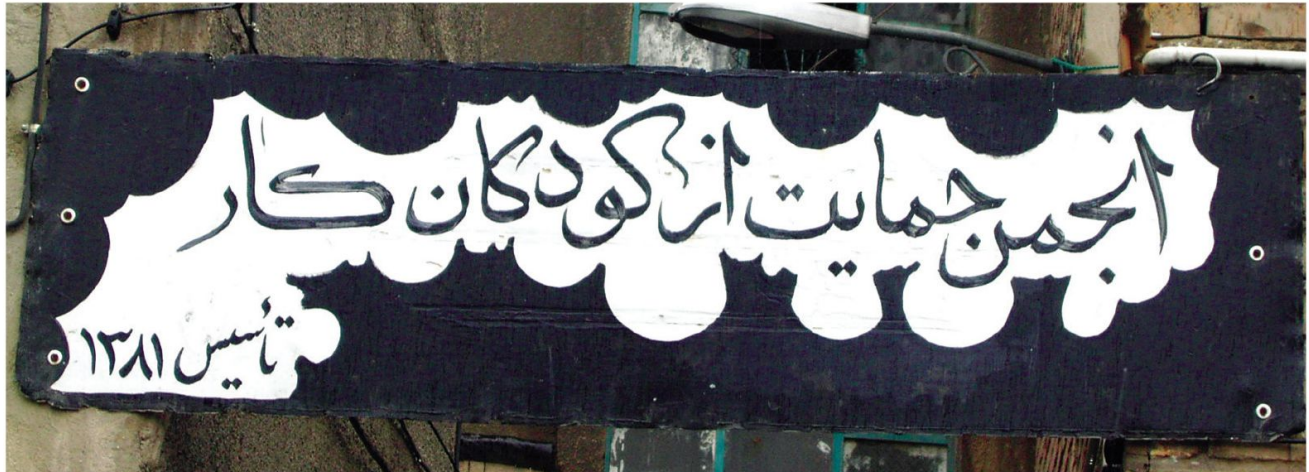 انجمن حمایت از کودکان کار
تأسیس ۱۳۸۱